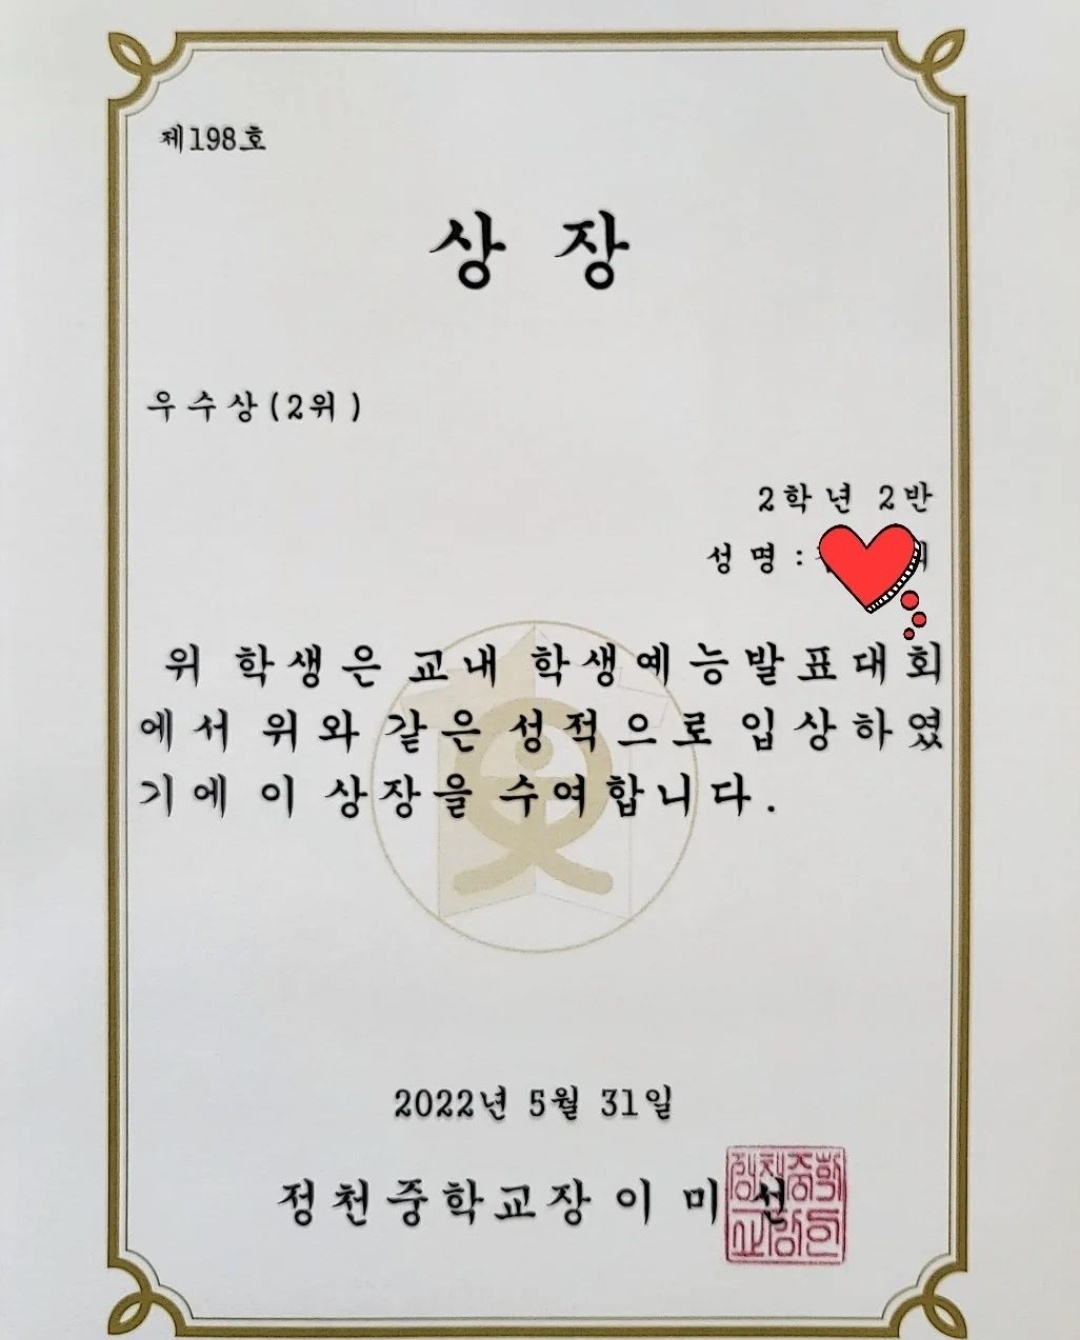 제198호
상 장
우수상(2위)
2학년 2반
성명 :
위 학생은 교내 학생예능발표대회
에서 위와 같은 성적으로 입상하였
기에 이 상장을 수여합니다.
2022년 5월 31일
정천중학교장 이 미 선
정천중학
교장의인